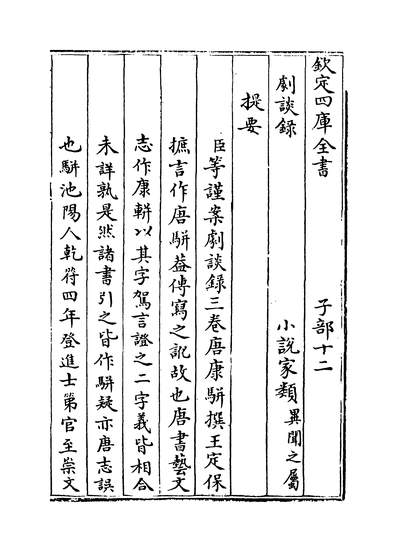 欽定四庫全書　子部十二
劇談錄　小說家類異聞之屬
提要
臣等謹案劇談録三卷唐康駢撰王定保
摭言作唐駢葢傳寫之訛故也唐書藝文
志作康軿以其字駕言證之二字義皆相合
未詳孰是然諸書引之皆作駢疑亦唐志誤
也駢池陽人乾符四年登進士第官至崇文